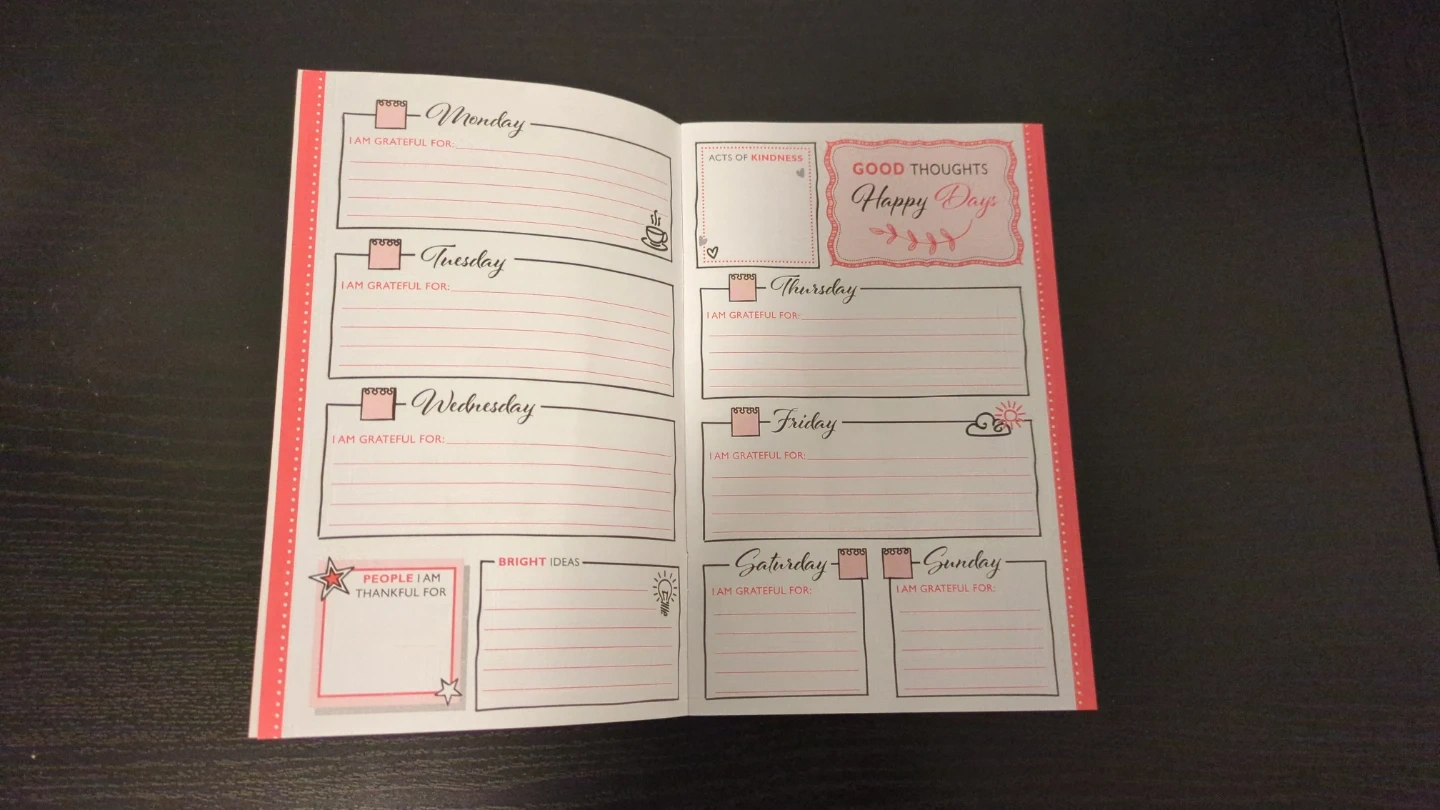 Monday
I AM GRATEFUL FOR:
Tuesday
I AM GRATEFUL FOR:
Wednesday
I AM GRATEFUL FOR:
PEOPLE I AM
THANKFUL FOR
BRIGHT IDEAS
ACTS OF KINDNESS
GOOD THOUGHTS
Happy Days
Thursday
I AM GRATEFUL FOR:
Friday
I AM GRATEFUL FOR:
Saturday
I AM GRATEFUL FOR:
Sunday
I AM GRATEFUL FOR: